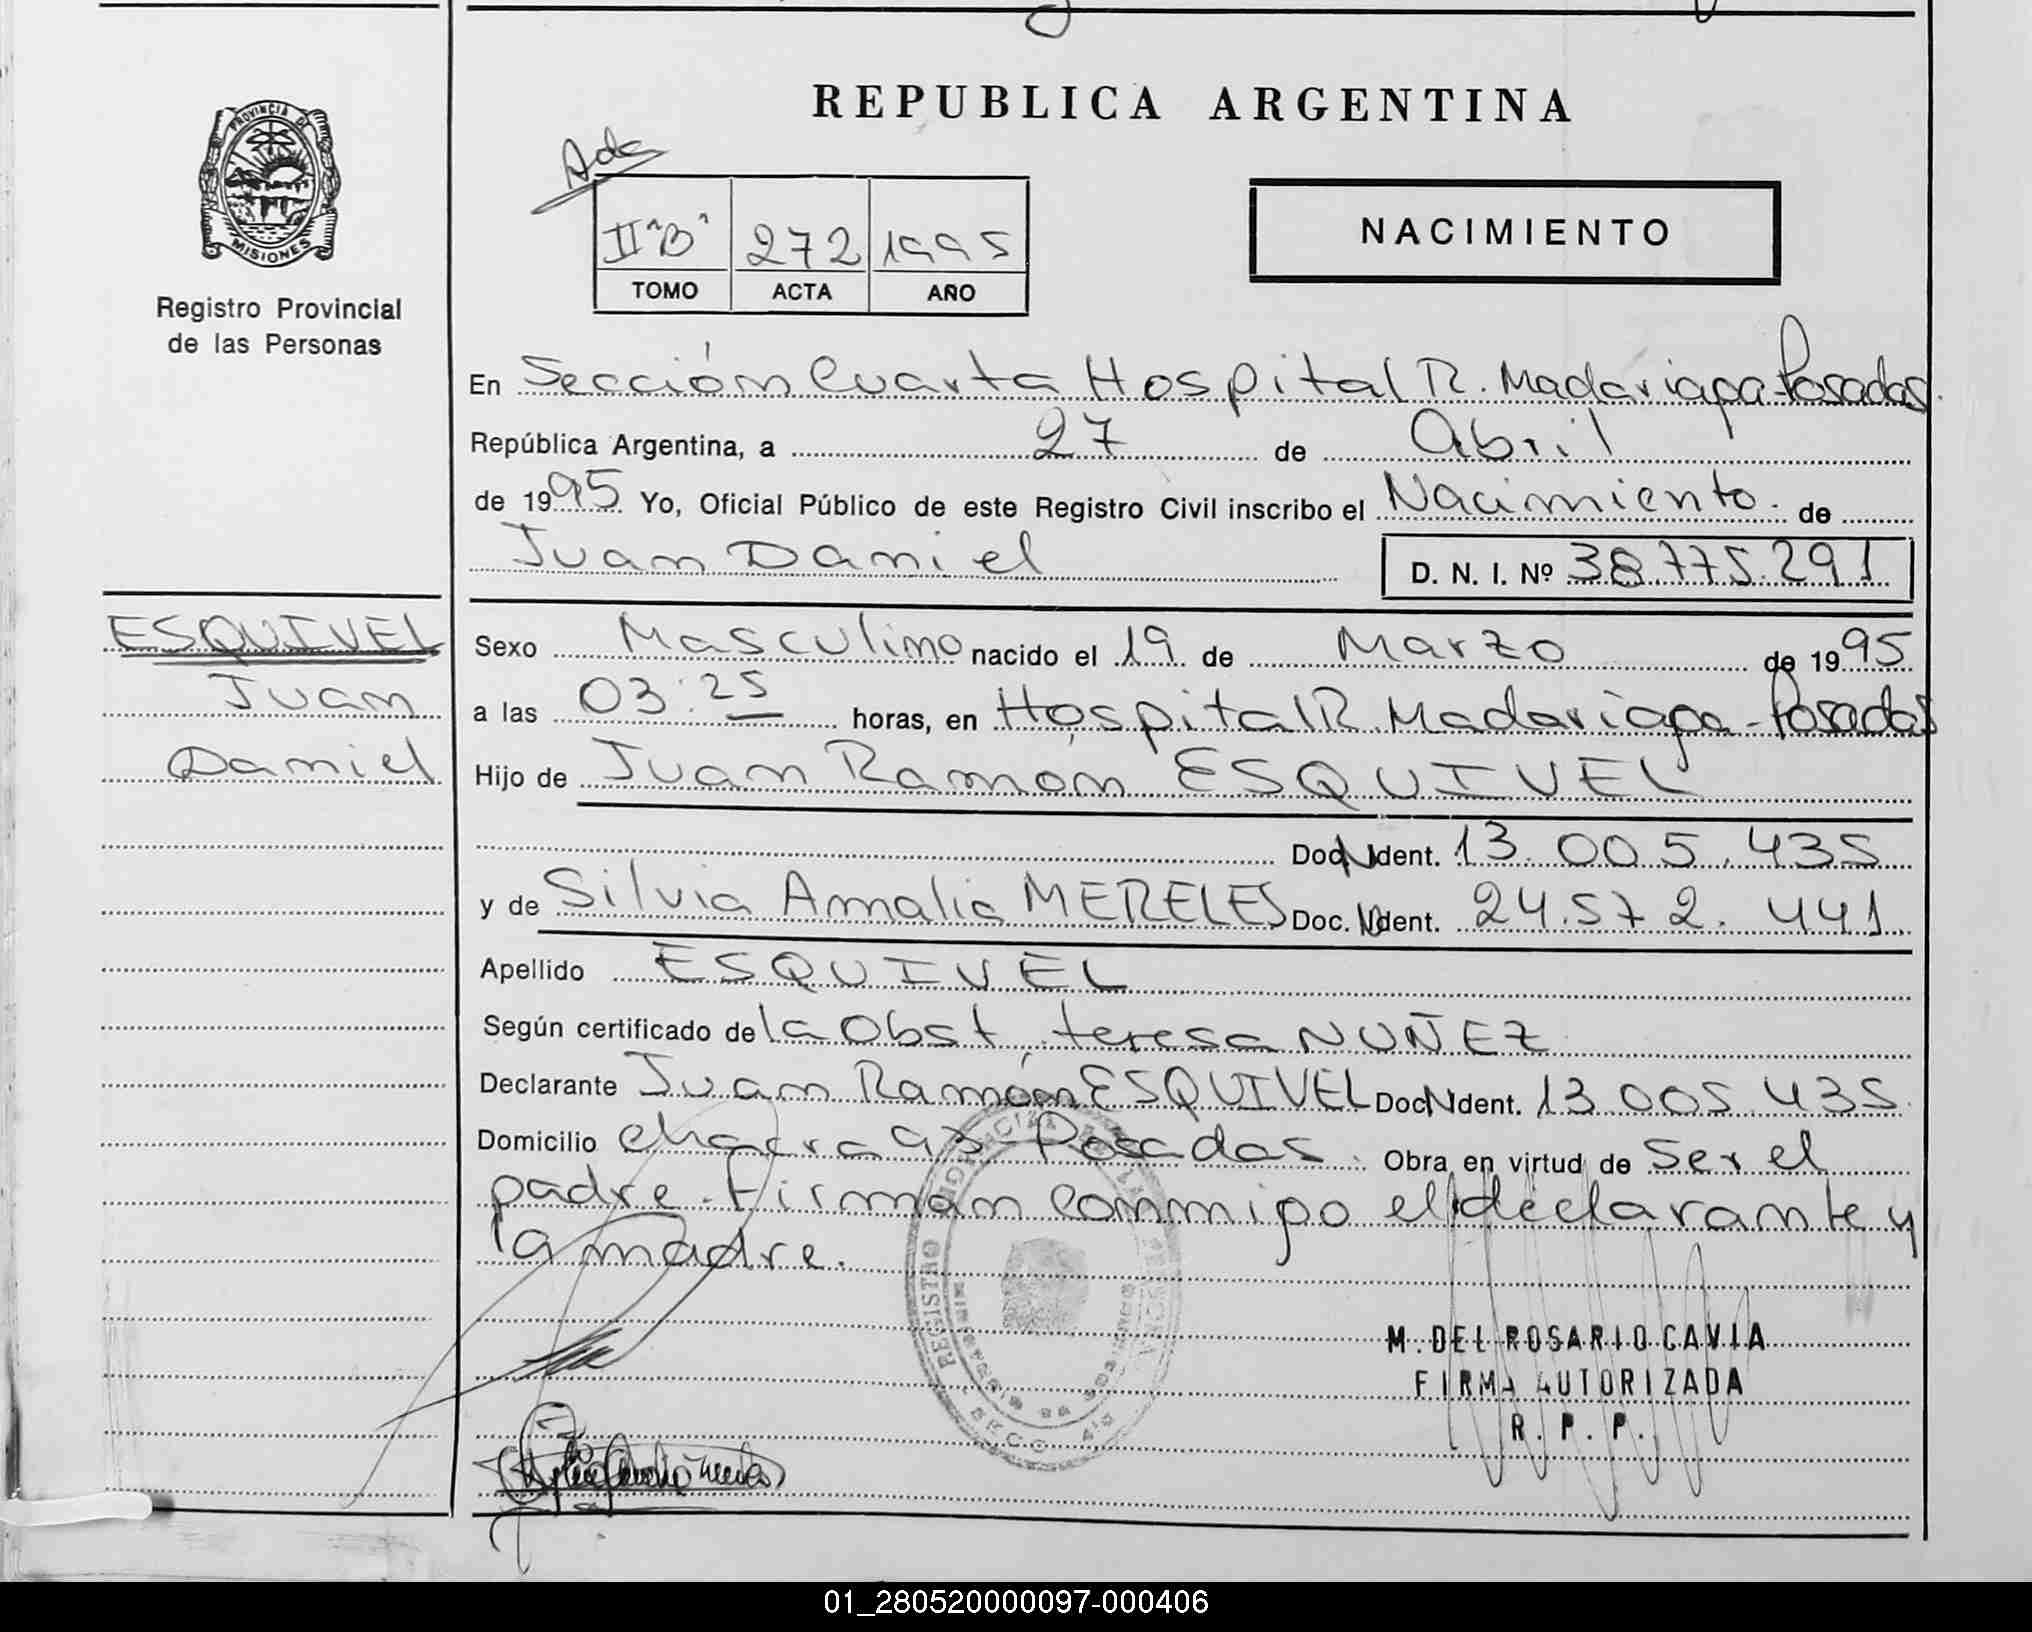 REPUBLICA ARGENTINA
PROVINCIA D
MISIONES
Registro Provincial
de las Personas
Ada
II "B" 272 1995
TOMO ACTA AÑO
NACIMIENTO
En Sección Cuarta Hospital R. Madariaga-Posadas.
República Argentina, a 27 de Abril
de 1995 Yo, Oficial Público de este Registro Civil inscribo el Nacimiento de
Juan Daniel D. N. I. Nº 38.775.291
ESQUIVEL
Juan
Daniel
Sexo Masculino nacido el 19 de Marzo de 1995
a las 03:25 horas, en Hospital R. Madariaga-Posadas
Hijo de Juan Ramón ESQUIVEL
Doc. N Ident. 13.005.435
y de Silvia Amalia MERELES Doc. N Ident. 24.572.441
Apellido ESQUIVEL
Según certificado de la Obst. teresa NUÑEZ
Declarante Juan Ramón ESQUIVEL Doc N Ident. 13.005.435
Domicilio chacra 93 Posadas. Obra en virtud de ser el
padre. Firman conmigo el declarante y
la madre.
REGISTRO
M. DEL ROSARIO CAVIA
FIRMA AUTORIZADA
R. P. P.
01_280520000097-000406